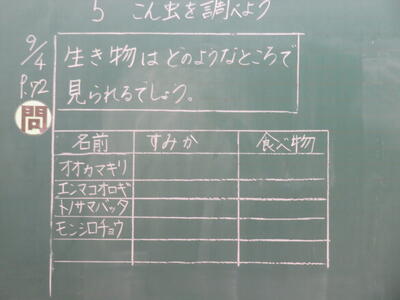 5 こん虫を調べよう
9/4
P.72
問
生き物はどのようなところで
見られるでしょう。
名前 すみか 食べ物
オオカマキリ
エンマコオロギ
トノサマバッタ
モンシロチョウ